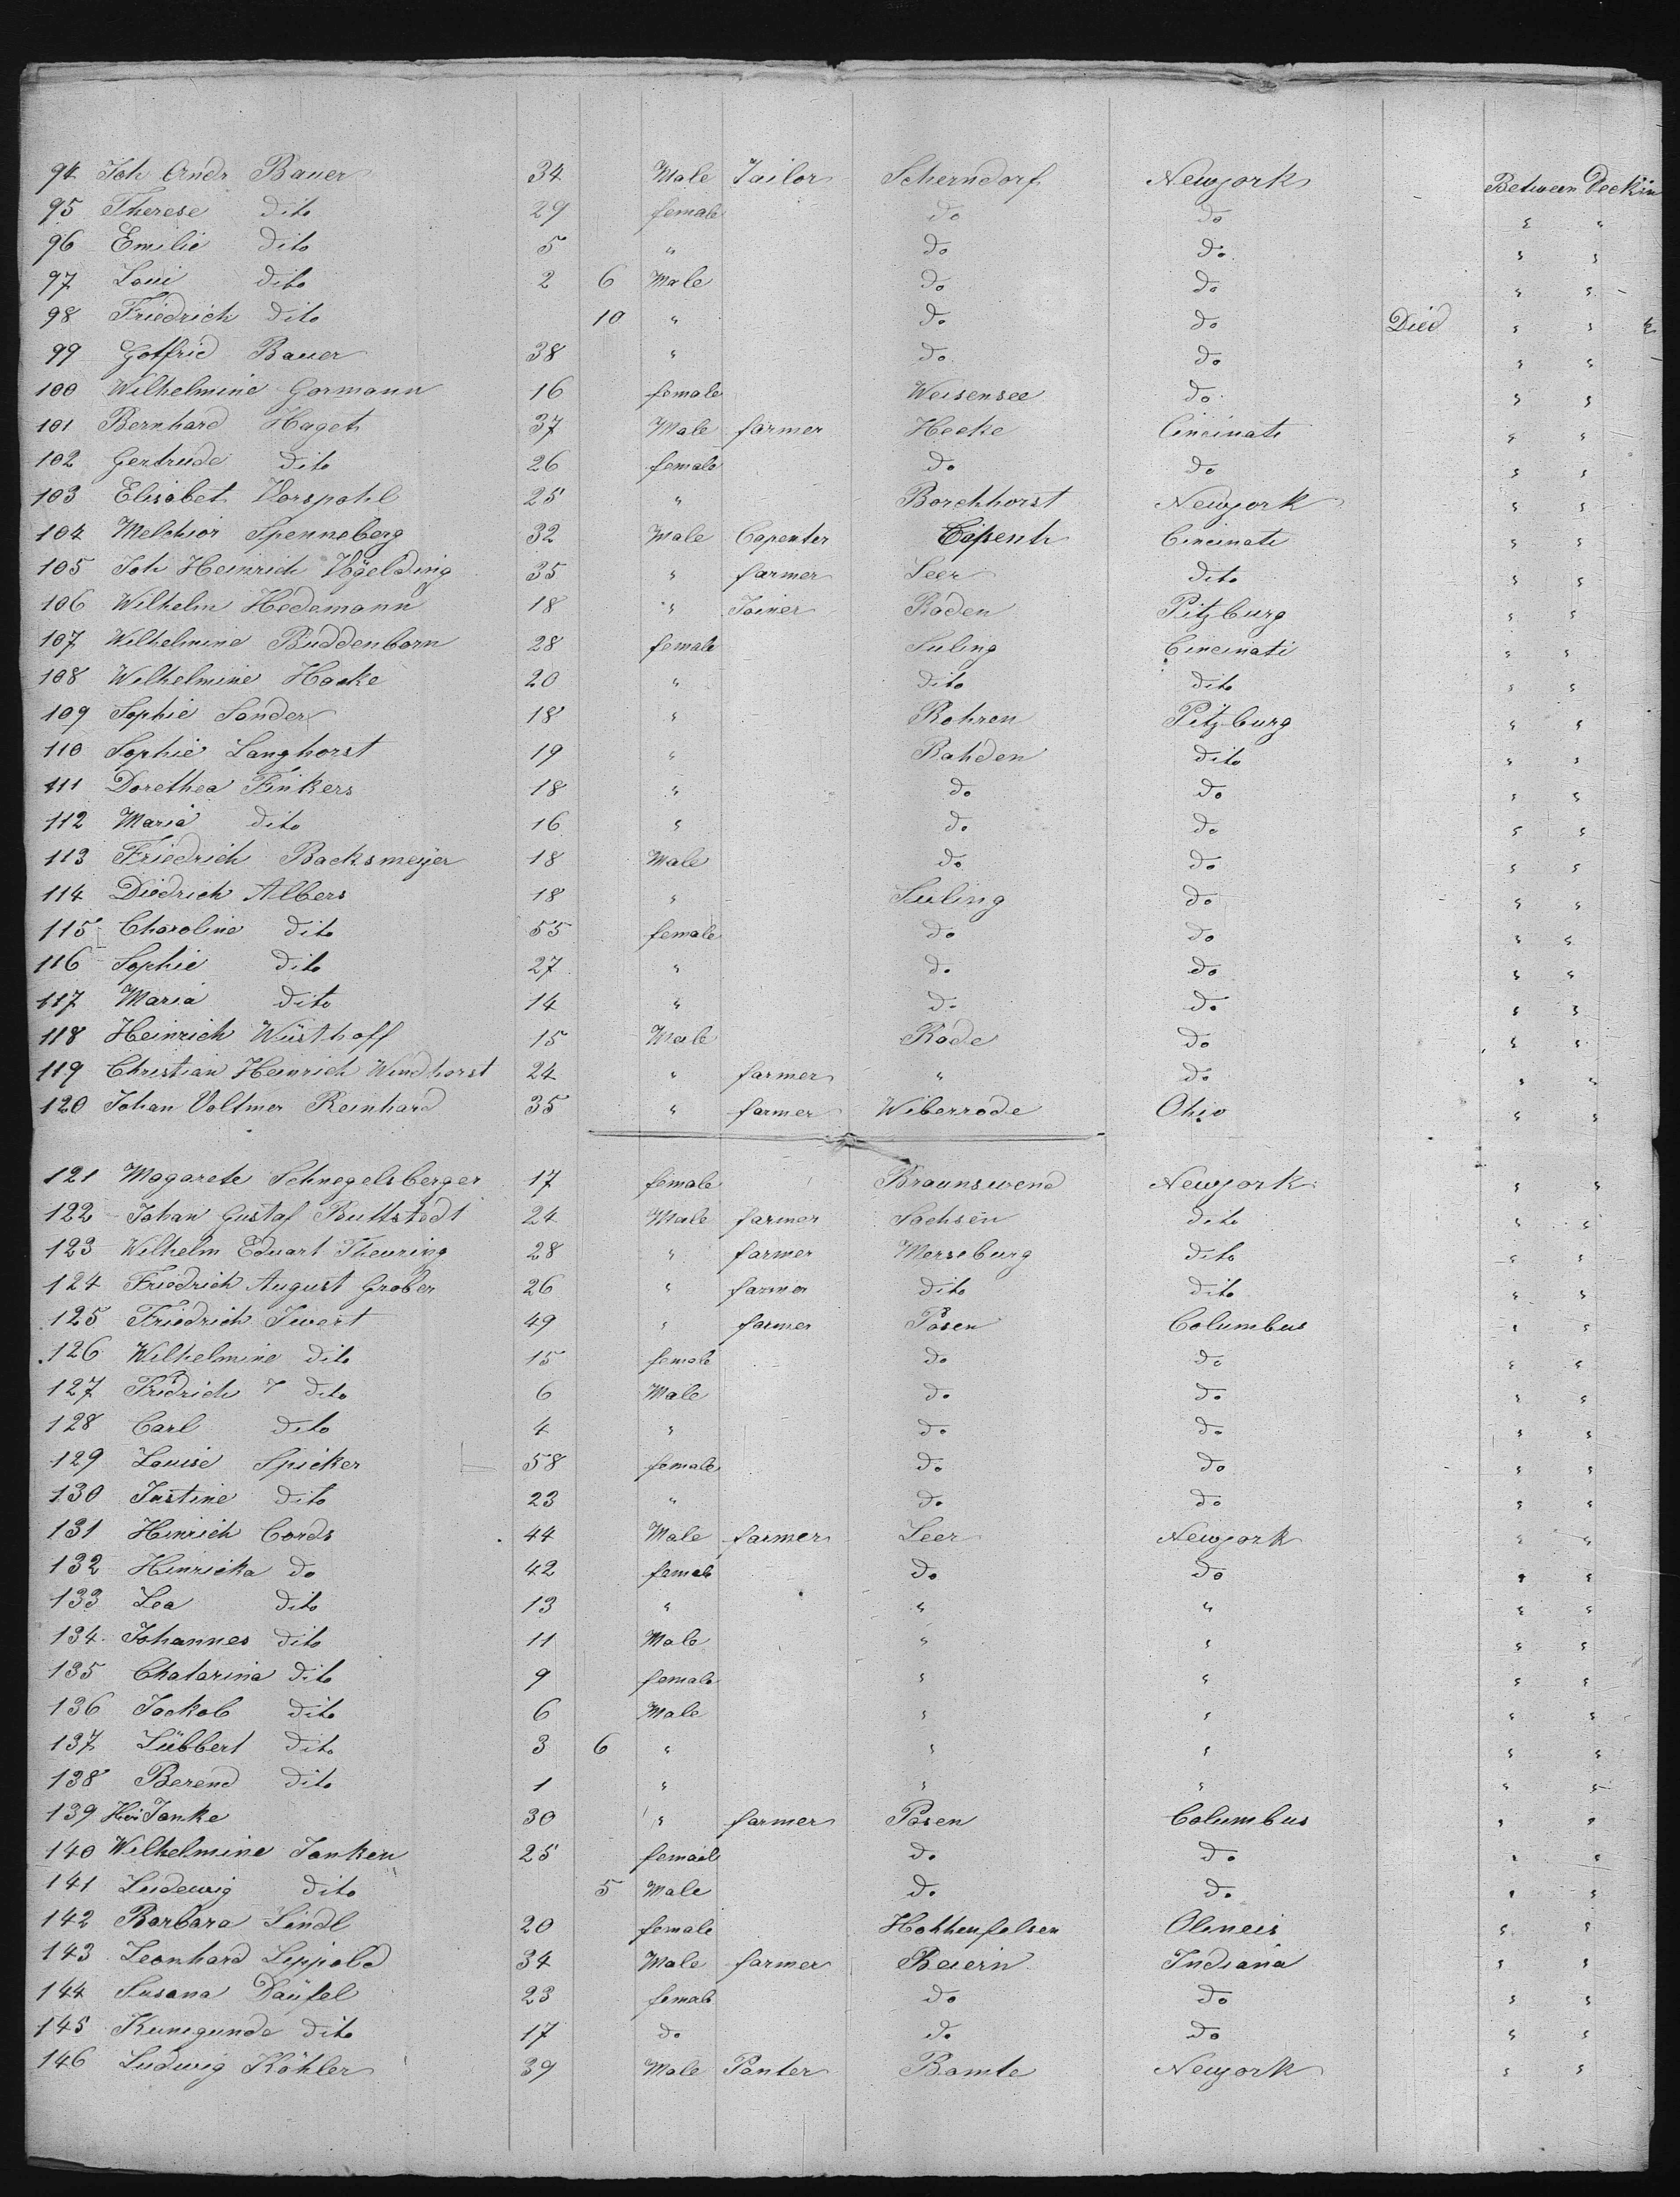 94 Joh Andr Bauer 34 Male Tailor Scherndorf Newjork Between Deck
95 Therese dito 29 female do do " "
96 Emilie dito 5 " do do " "
97 Loui dito 2 6 Male do do " "
98 Friedrich dito 10 " do do Died " "
99 Gotfried Bauer 38 " do do " "
100 Wilhelmine Gormann 16 female Weisensee do " "
101 Bernhard Hageh 37 Male farmer Heeke Cincinati " "
102 Gertrude dito 26 female do do " "
103 Elisabet Vorspohl 25 " Borchhorst Newjork " "
104 Melchior Spenneberg 32 Male Capenter Capentr Cincinati " "
105 Joh Heinrich Vögelding 35 " farmer Leer dito " "
106 Wilhelm Hedemann 18 " Joiner Raden Pitzburg " "
107 Wilhelmine Buddenborn 28 female Suling Cincinati " "
108 Wilhelmine Hacke 20 " dito dito " "
109 Sophie Sander 18 " Rohren Pitzburg " "
110 Sophie Langhorst 19 " Rahden dito " "
111 Dorethea Finkers 18 " do do " "
112 Maria dito 16 " do do " "
113 Friedrich Backsmeyer 18 Male do do " "
114 Diedrich Albers 18 " Suling do " "
115 Charoline dito 55 female do do " "
116 Sophie dito 27 " do do " "
117 Maria dito 14 " do do " "
118 Heinrich Wüsthoff 15 Male Rade do " "
119 Christian Heinrich Windhorst 24 " farmer " do " "
120 Johan Voltmer Reinhard 35 " farmer Wiberrode Ohio " "
121 Magarete Schnegelsberger 17 female Braunswend Newjork " "
122 Johan Gustaf Buttstedt 24 Male farmer Sachsen dito " "
123 Wilhelm Eduart Theuring 28 " farmer Merseburg dito " "
124 Friedrich August Grober 26 " farmer dito dito " "
125 Friedrich Iwert 49 " farmer Posen Columbus " "
126 Wilhelmine dito 15 female do do " "
127 Fridrich dito 6 Male do do " "
128 Carl dito 4 " do do " "
129 Louise Spicker 58 female do do " "
130 Justine dito 23 " do do " "
131 Hinrich Cords 44 Male farmer Leer Newjork " "
132 Hinricka do 42 female do do " "
133 Lea dito 13 " " " " "
134 Johannes dito 11 Male " " " "
135 Chatarina dito 9 female " " " "
136 Jackob dito 6 Male " " " "
137 Lübbert dito 3 6 " " " " "
138 Berend dito 1 " " " " "
139 Hei Janke 30 " farmer Posen Columbus " "
140 Wilhelmine Janken 25 femail do do " "
141 Ludewig dito 5 Male do do " "
142 Barbara Lindl 20 female Hohhenfelsen Olineis " "
143 Leonhard Lippold 34 Male farmer Beiern Indiana " "
144 Susana Däufel 23 female do do " "
145 Kunigunde dito 17 do do do " "
146 Ludwig Köhler 39 Male Panter Bamte Newjork " "